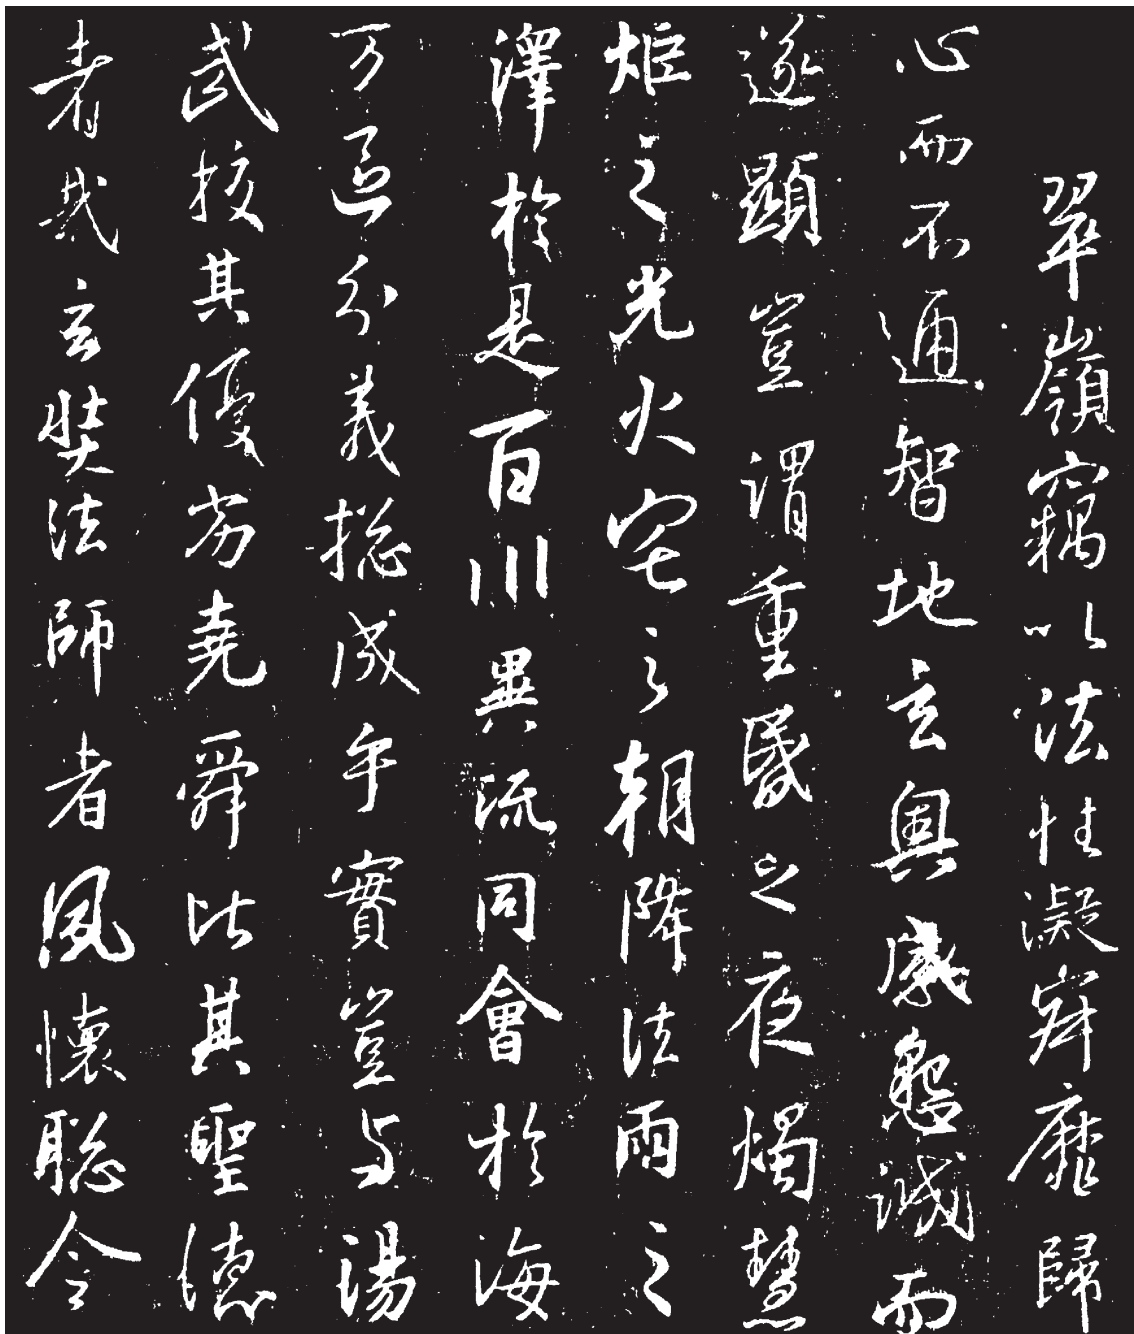 翠嶺竊以法性凝寂靡歸
心而不通智地玄奧感懇誠而
遂顯豈謂重昏之夜燭慧
炬之光火宅之朝降法雨之
澤於是百川異流同會於海
万區分義揔成乎實豈與湯
武挍其優劣堯舜比其聖德
者哉玄奘法師者夙懷聡令